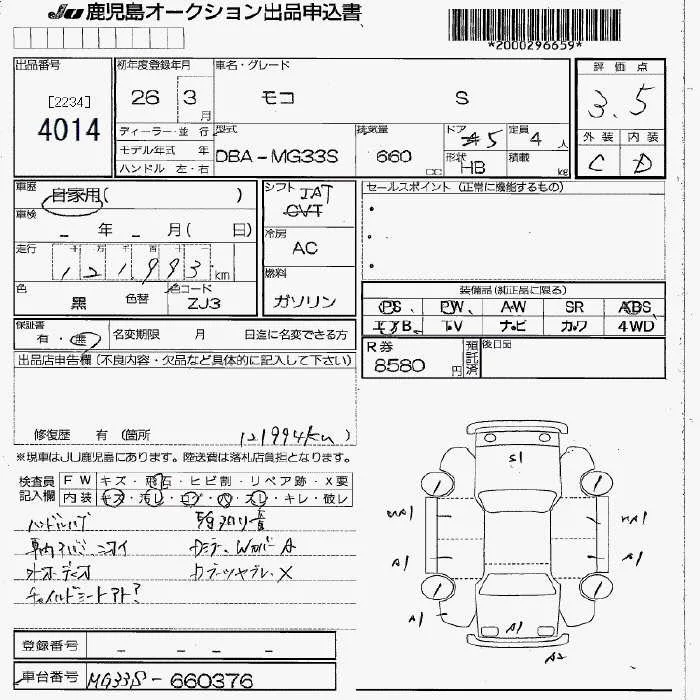 JU 鹿児島オークション出品申込書
*2000296659*
出品番号 初年度登録年月 車名・グレード 評価点
[2234]
4014
26 3月 モコ S
3.5
ディーラー・並行 型式 排気量 ドア 定員 外装 内装
モデル年式 年 DBA-MG33S 660 cc 5 4人
ハンドル 左・右 形状 HB 積載 kg
C D
車歴 自家用( ) シフト IAT CVT セールスポイント (正常に機能するもの)
車検 - 年 - 月( 日) 冷房 AC
走行 121,993 km 燃料 ガソリン
色 黒 色替 色コード ZJ3
装備品 (純正品に限る)
PS PW AW SR ABS
エアB TV ナビ カワ 4WD
保証書 有・無 名変期限 月 日迄に名変できる方
R券 8580円 預託済 後日品
出品店申告欄 (不良内容・欠品など具体的に記入して下さい)
修復歴 有 (箇所 121994km )
※現車はJU鹿児島にあります。陸送費は落札店負担となります。
検査員記入欄 FW キズ・飛石・ヒビ割・リペア跡・X要
内装 キズ・汚レ・コゲ・穴・スレ・キレ・破レ
車内タバコ、ニオイ
オーディオ
S1
A1
A1
A1
A1
A2
登録番号 - - -
車台番号 MG33S-660376